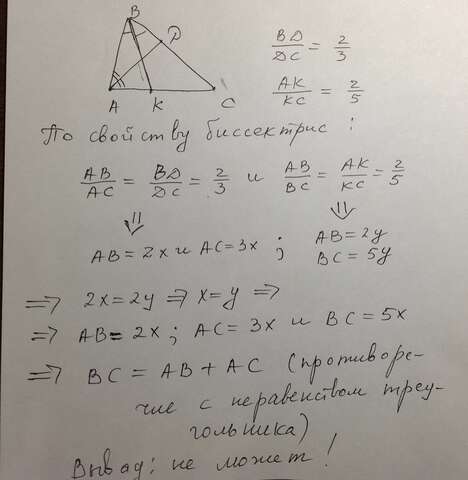 B
D
A K C
BD/DC = 2/3
AK/KC = 2/5
По свойству биссектрис :
AB/AC = BD/DC = 2/3 и AB/BC = AK/KC = 2/5
⇓ ⇓
AB = 2x и AC = 3x ; AB = 2y
BC = 5y
⇒ 2x = 2y ⇒ x = y ⇒
⇒ AB = 2x ; AC = 3x и BC = 5x
⇒ BC = AB + AC (противоре-
чие с неравенством треу-
гольника)
Вывад: не может !